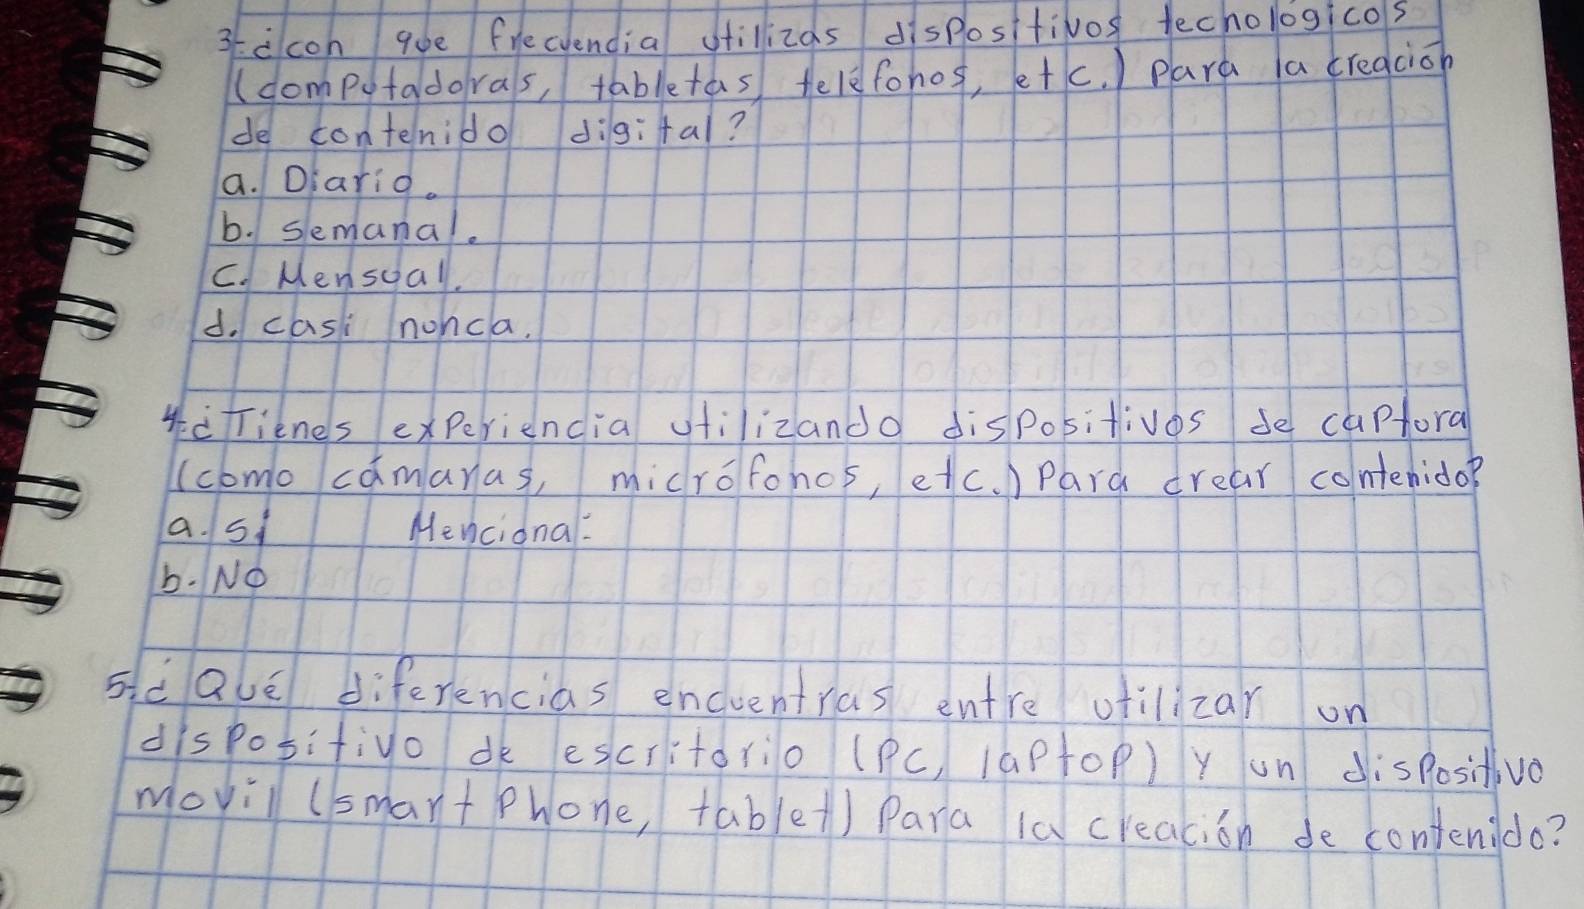 3-¿con que frecuencia utilizas dispositivos technologicos
(computadoras, tabletas, teléfonos, etc.) para la creación
de contenido digital?
a. Diario.
b. semanal.
c. Mensual.
d. casi nunca.
4-¿Tienes experiencia utilizando dispositivos de captura
(como cámaras, micrófonos, etc.) Para crear contenido?
a. si Menciona:
b. No
5-¿Qué diferencias encuentras entre utilizar un
dispositivo de escritorio (PC, laptop) y un dispositivo
movil (smart phone, tablet) Para la creación de contenido?